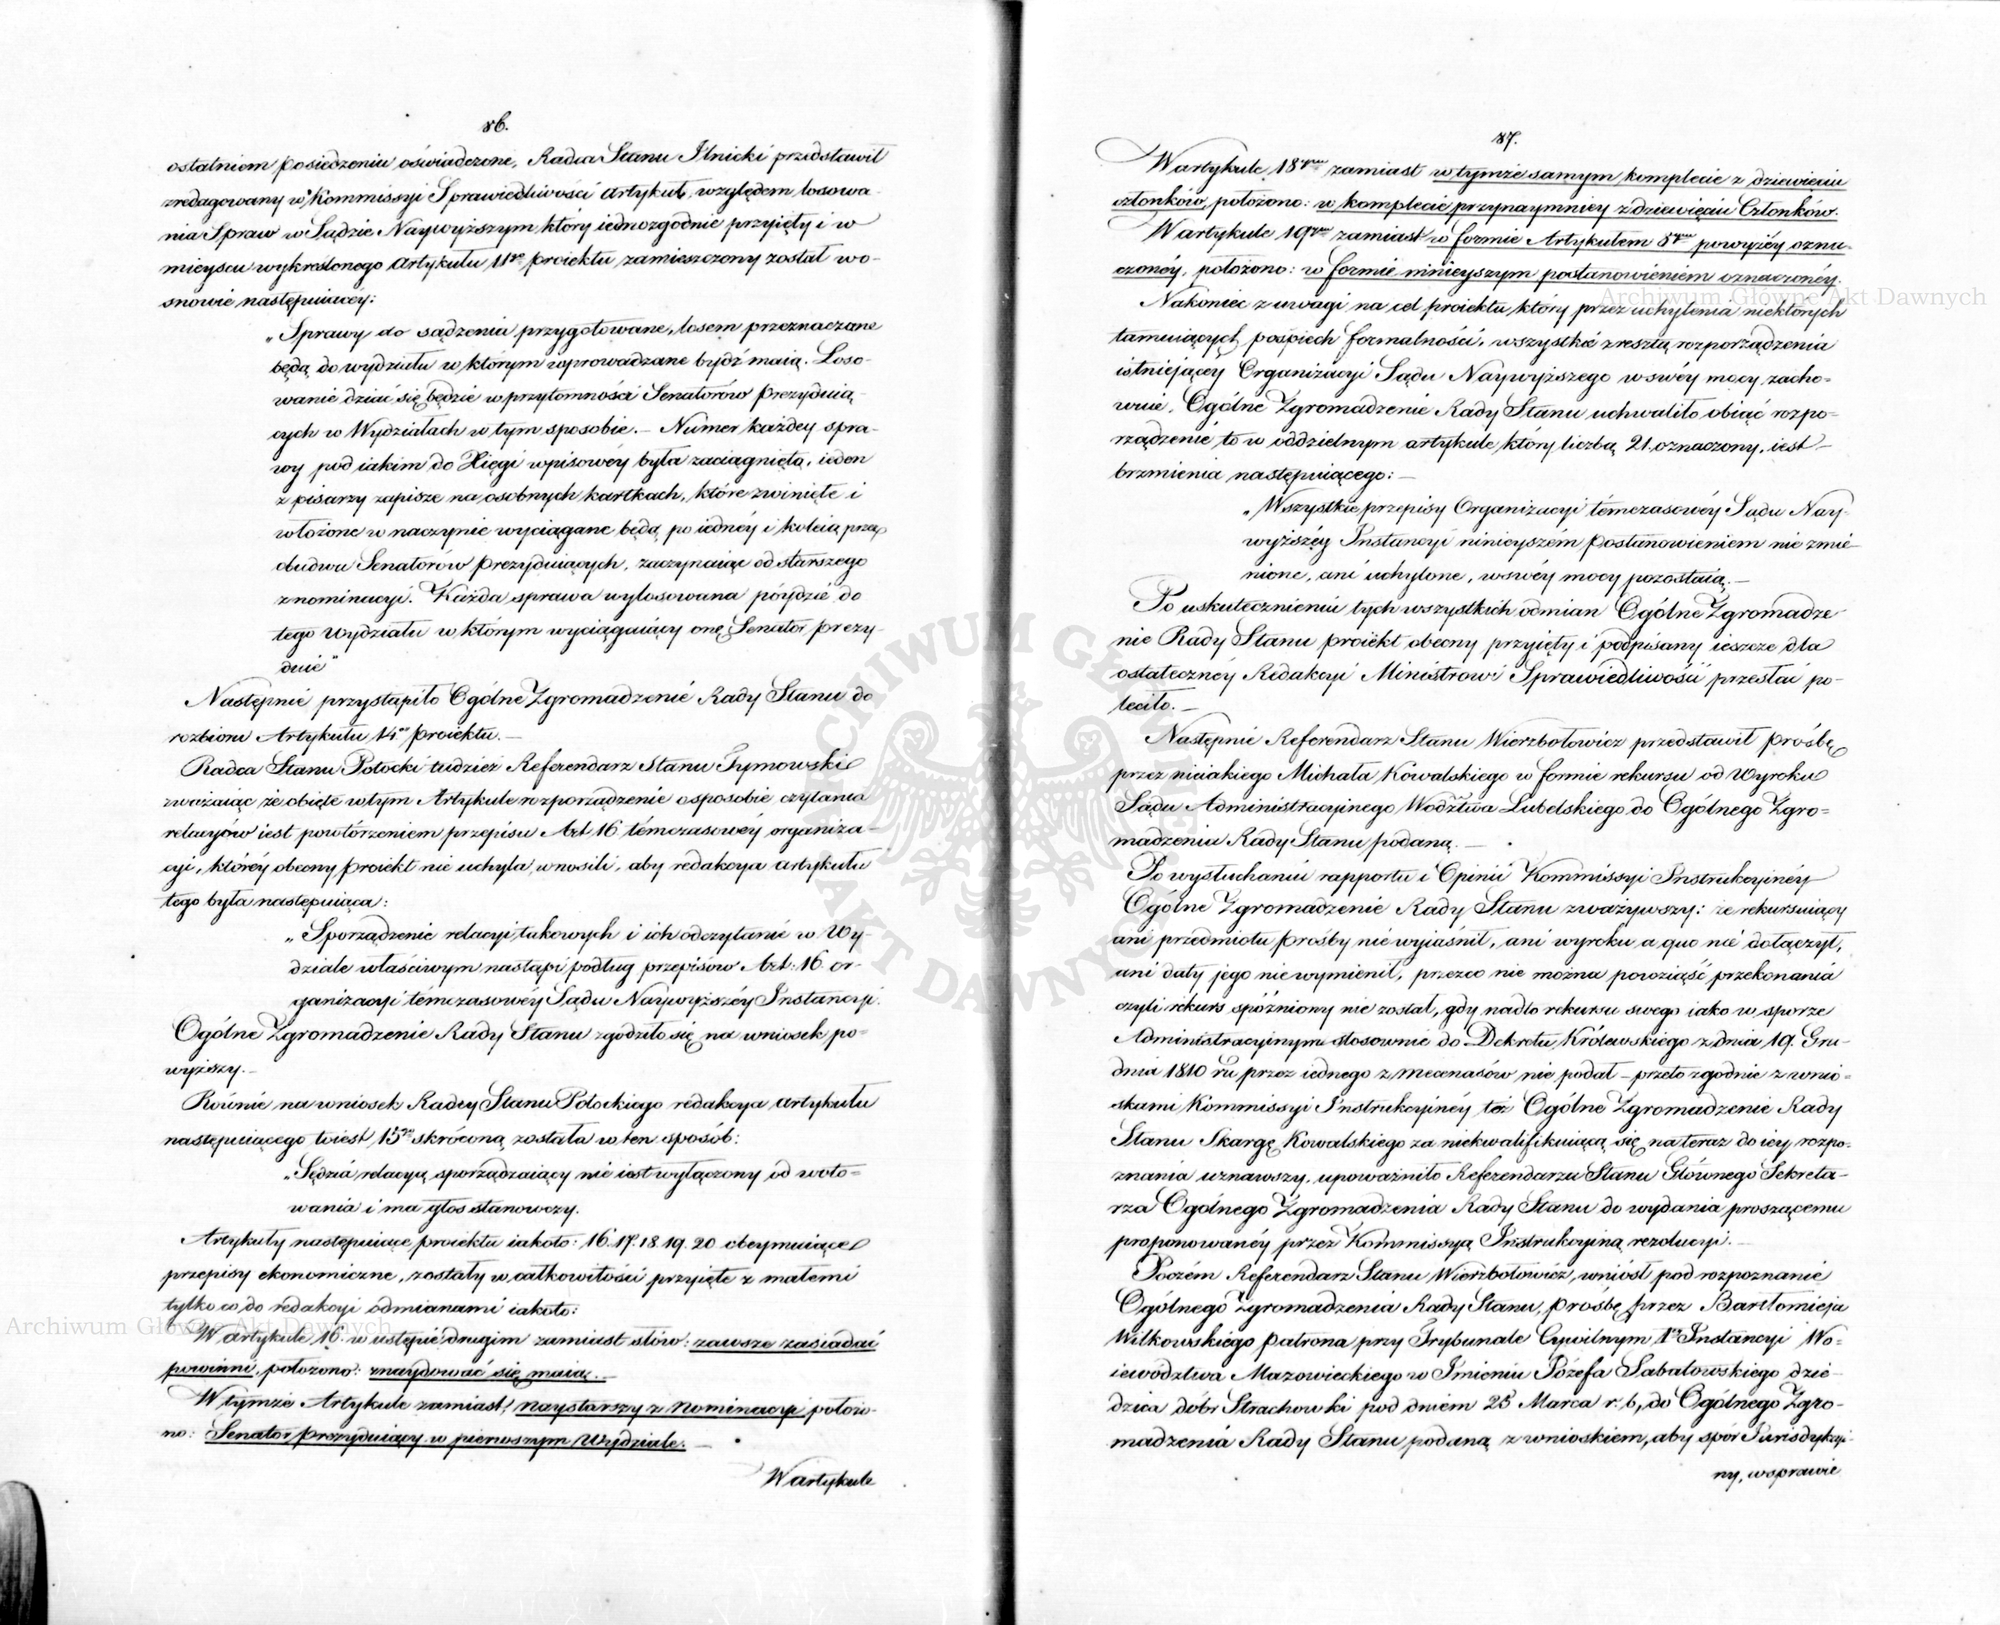 86.
ostatniem posiedzeniu oświadczone, Radca Stanu Ilnicki przedstawił
zredagowany w Kommissyi Sprawiedliwości Artykuł, względem losowa-
nia Spraw w Sądzie Naywyższym, który iednozgodnie przyięty i w
mieyscu wykreślonego Artykułu 11go proiektu, zamieszczony został wo-
snowie następuiącéy:
„Sprawy do sądzenia przygotowane, losem przeznaczane
będą do wydziału w którym wprowadzane bydź maią. Loso-
wanie dziać się będzie w przytomności Senatorów Prezyduią-
cych w Wydziałach w tym sposobie. – Numer każdey spra-
wy pod iakim do Xięgi wpisowéy była zaciągniętą, ieden
z pisarzy zapisze na osobnych kartkach, które zwinięte i
włożone w naczynie wyciągane będą po iednéy i koleią przez
obudwu Senatorów Prezyduiących, zaczynaiąc od starszego
z nominacyi. Każda sprawa wylosowana póydzie do
tego Wydziału w którym wyciągaiący onę Senator prezy-
duie"
Następnie przystąpiło Ogólne Zgromadzenie Rady Stanu do
rozbioru Artykułu 14go proiektu. –
Radca Stanu Potocki tudzież Referendarz Stanu Tymowski
zważaiąc że obięte w tym Artykule rozporządzenie o sposobie czytania
relacyów iest powtórzeniem przepisu Art 16 témczasowéy organiza-
cyi, któréy obecny proiekt nie uchyla, wnosili, aby redakcya artykułu
tego była następuiąca:
„Sporządzenie relacyi takowych i ich odczytanie w Wy-
dziale właściwym nastąpi podług przepisów Art: 16. or-
ganizacyi témczasowéy Sądu Naywyższéy Instancyi.
Ogólne Zgromadzenie Rady Stanu zgodziło się na wniosek po-
wyższy. –
Równie na wniosek Radcy Stanu Potockiego redakcya artykułu
następuiącego to iest 15go skróconą została w ten sposób:
„Sędzia relacyą sporządzaiący nie iest wyłączony od woto-
wania i ma głos stanowczy.
Artykuły następuiące proiektu iakoto: 16. 17. 18. 19. 20 obeymuiące
przepisy ekonomiczne, zostały w całkowitości przyięte z małemi
tylko co do redakcyi odmianami iakoto:
W artykule 16. w ustępie drugim zamiast słów: zawsze zasiadać
powinni, położono: znaydować się maią. –
W tymże Artykule zamiast: naystarszy z Nominacyi położo-
no: Senator prezyduiący w pierwszym Wydziale. –
W artykule
87.
W artykule 18tym zamiast w tymże samym komplecie z dziewięciu
członków, położono: w komplecie przynaymniey z dziewięciu Członków.
W artykule 19tym zamiast w formie Artykułem 8ym powyżéy ozna-
czonéy, położono: w formie ninieyszym postanowieniem oznaczonéy.
Nakoniec z uwagi na cel proiektu, który przez uchylenia niektórych
tamuiących pośpiech formalności, wszystkie zresztą rozporządzenia
istniejącey Organizacyi Sądu Naywyższego w swéy mocy zacho-
wuie, Ogólne Zgromadzenie Rady Stanu uchwaliło obiąć rozpo-
rządzenie to w oddzielnym artykule, który liczbą 21. oznaczony, iest
brzmienia następuiącego: –
„Wszystkie przepisy Organizacyi témczasowéy Sądu Nay-
wyższéy Instancyi ninieyszem Postanowieniem nie zmie-
nione, ani uchylone, w swéy mocy pozostaią. –
Po uskutecznieniu tych wszystkich odmian Ogólne Zgromadze-
nie Rady Stanu proiekt obecny przyięty i podpisany ieszcze dla
ostatecznéy Redakcyi Ministrowi Sprawiedliwości przesłać po-
leciło. –
Następnie Referendarz Stanu Wierzbołowicz przedstawił prośbę
przez nieiakiego Michała Kowalskiego w formie rekursu od Wyroku
Sądu Administracyinego Wodztwa Lubelskiego do Ogólnego Zgro-
madzenia Rady Stanu podaną. –
Po wysłuchaniu rapportu i Opinii Kommissyi Instrukcyinéy
Ogólne Zgromadzenie Rady Stanu zważywszy: że rekursuiący
ani przedmiotu prośby nie wyiaśnił, ani wyroku a quo nie dołączył,
ani daty jego nie wymienił, przezco nie można powziąść przekonania
czyli rekurs spóźniony nie został, gdy nadto rekursu swego iako w sporze
Administracyinym stosownie do Dekretu Królewskiego z dnia 19. Gru-
dnia 1810 ru przez iednego z mecenasów nie podał – przeto zgodnie z wnio-
skami Kommissyi Instrukcyinéy też Ogólne Zgromadzenie Rady
Stanu Skargę Kowalskiego za niekwalifikuiącą się na teraz do iey rozpo-
znania uznawszy, upoważniło Referendarza Stanu Głównego Sekreta-
rza Ogólnego Zgromadzenia Rady Stanu do wydania proszącemu
proponowanéy przez Kommissyą Instrukcyiną rezolucyi. –
Poczém Referendarz Stanu Wierzbołowicz, wniósł pod rozpoznanie
Ogólnego Zgromadzenia Rady Stanu, prośbę przez Bartłomieja
Wilkowskiego Patrona przy Trybunale Cywilnym 1ey Instancyi Wo-
iewództwa Mazowieckiego w Imieniu Józefa Sabatowskiego dzie-
dzica dóbr Strachowki pod dniem 25 Marca r. b. do Ogólnego Zgro-
madzenia Rady Stanu podaną z wnioskiem, aby spór Jurisdykcyi-
ny, w sprawie
Archiwum Główne Akt Dawnych
Archiwum Główne Akt Dawnych
Archiwum Główne Akt Dawnych
ARCHIWUM GŁÓWNE AKT DAWNYCH